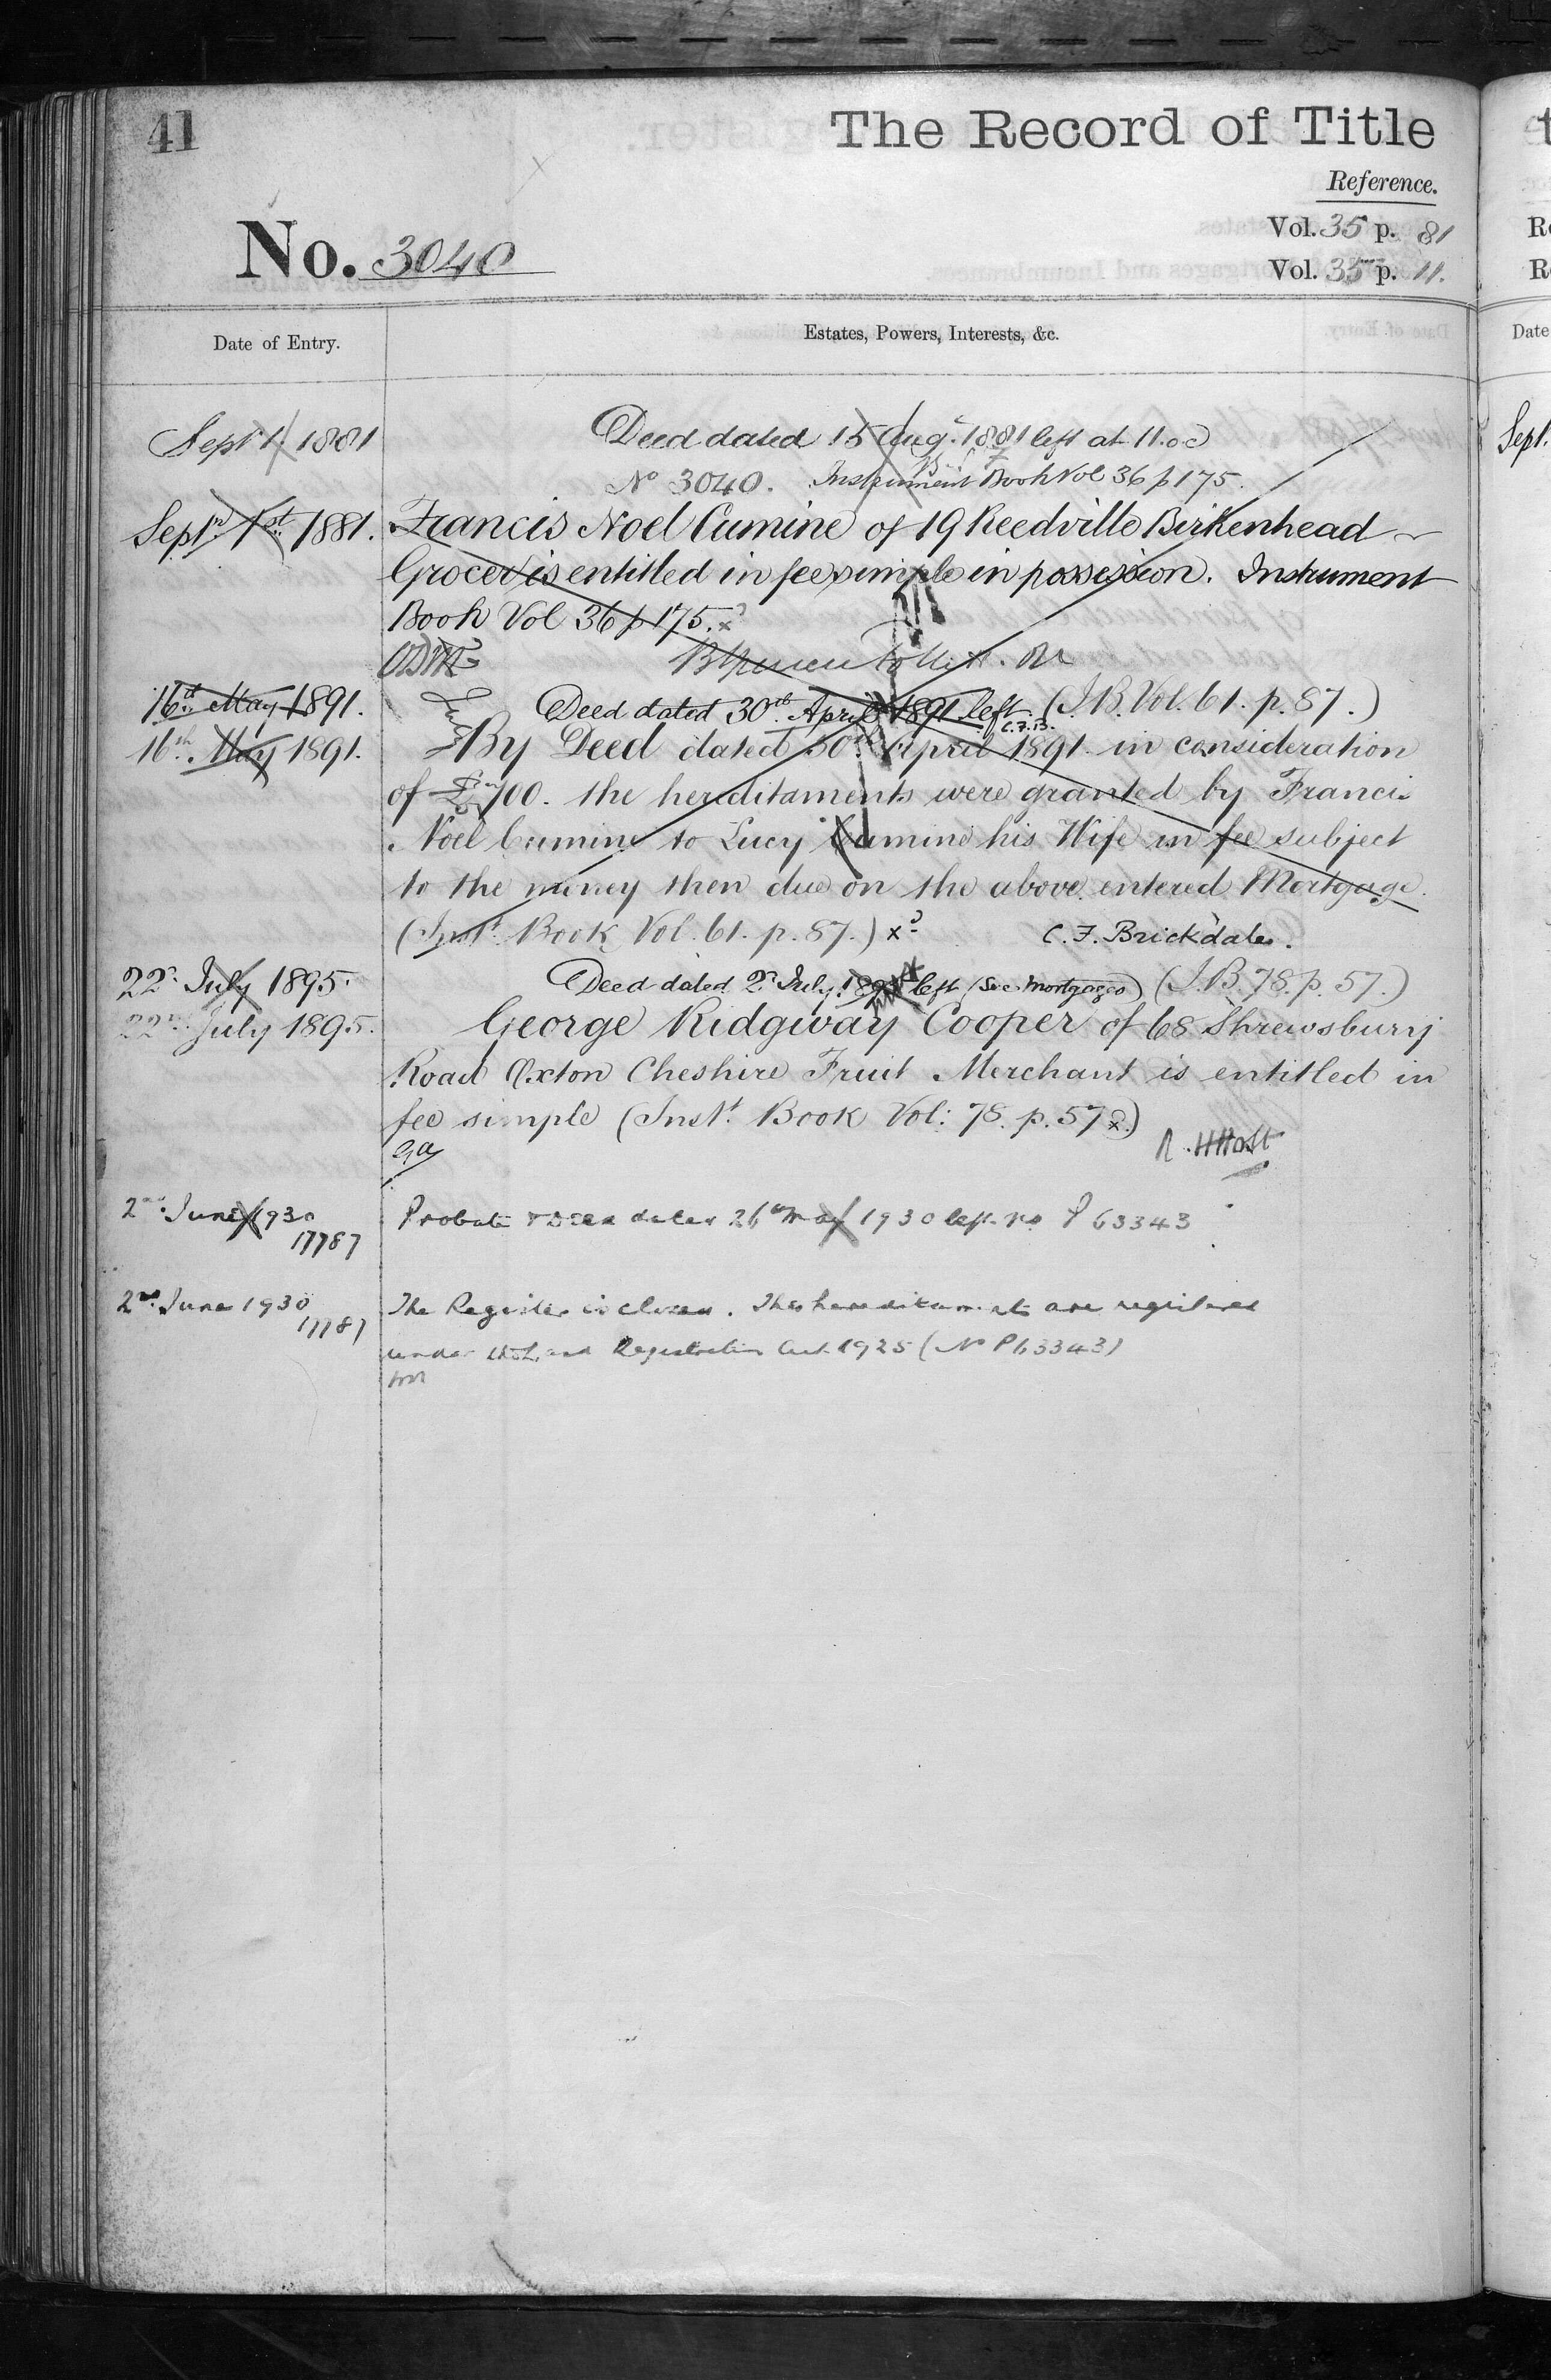 41
The Record of Title
Reference.
No. 3040
Vol. 35 p. 81
Vol. 35 p. 11.
Date of Entry.
Estates, Powers, Interests, &c.
Sept 1. 1881
Deed dated 15 Aug. 1881 left at 11.
No 3040. Instrument Book Vol 36 p 175.
Sept. 1st. 1881. Francis Noel Cumine of 19 Reedville Birkenhead
Grocer is entitled in fee simple in possession. Instrument
Book Vol 36 p 175. x
16th May 1891. Deed dated 30th April 1891 left (I.B. Vol. 61. p. 87.)
C.F.B.
16th May 1891. By Deed dated 30th April 1891 in consideration
of £700. the hereditaments were granted by Francis
Noel Cumine to Lucy Cumine his Wife in fee subject
to the money then due on the above entered Mortgage.
(Inst. Book Vol. 61. p. 87.) x C. F. Brickdale.
22n. July 1895. Deed dated 2n July 1895 left (See Mortgages) (I.B. 78. p. 57.)
22nd July 1895. George Ridgway Cooper of 68 Shrewsbury
Road Oxton Cheshire Fruit Merchant is entitled in
fee simple (Inst. Book Vol: 78. p. 57 x.)
2nd June 1930 Probate & Deed dated 26th May 1930 left no P 63343
17787
2nd June 1930 The Register is closed. The hereditaments are registered
17787
under the Land Registration Act 1925 (No P63343)
Date
Sept.